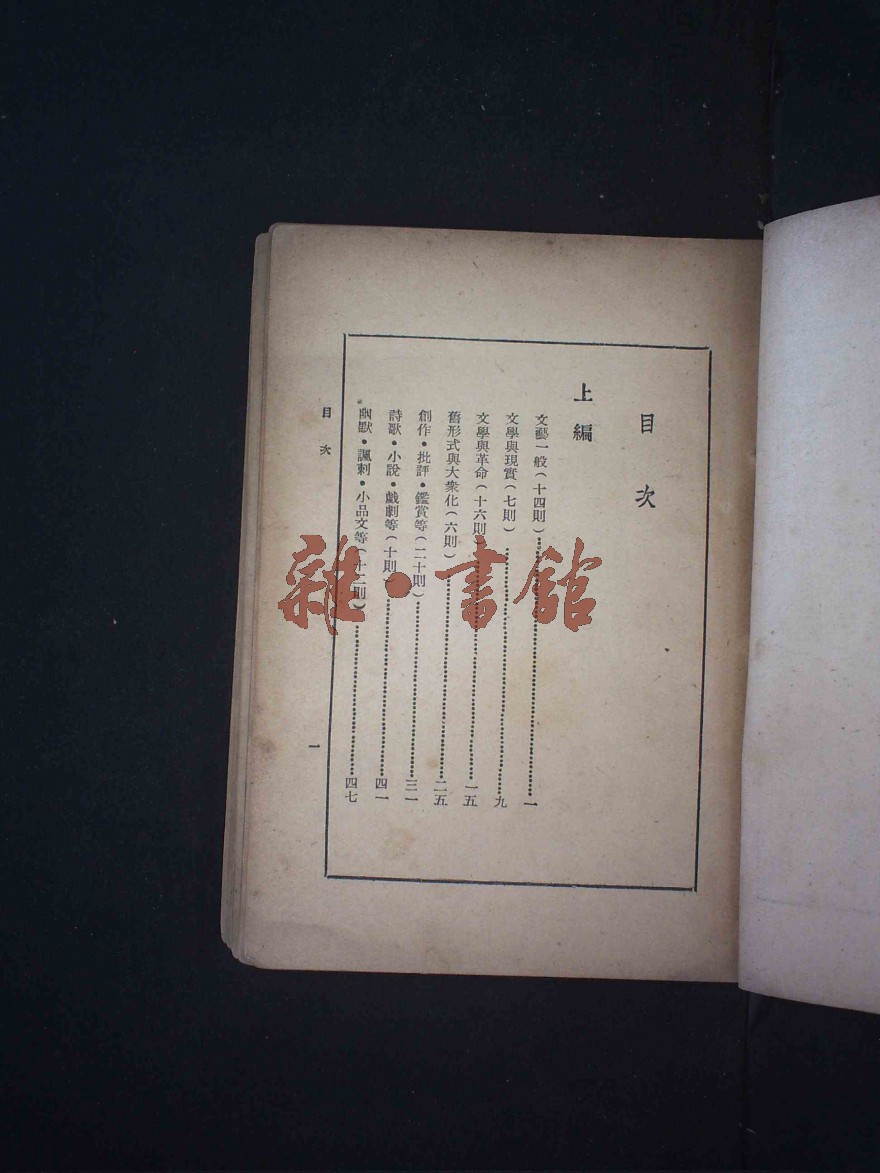 目次
上編
文藝一般(十四則)…………一
文學與現實(七則)…………九
文學與革命(十六則)…………一五
舊形式與大衆化(六則)…………二五
創作・批評・鑑賞等(二十則)…………三一
詩歌・小說・戲劇等(十則)…………四一
幽默・諷刺・小品文等(十二則)…………四七
目次
一
雜・書館